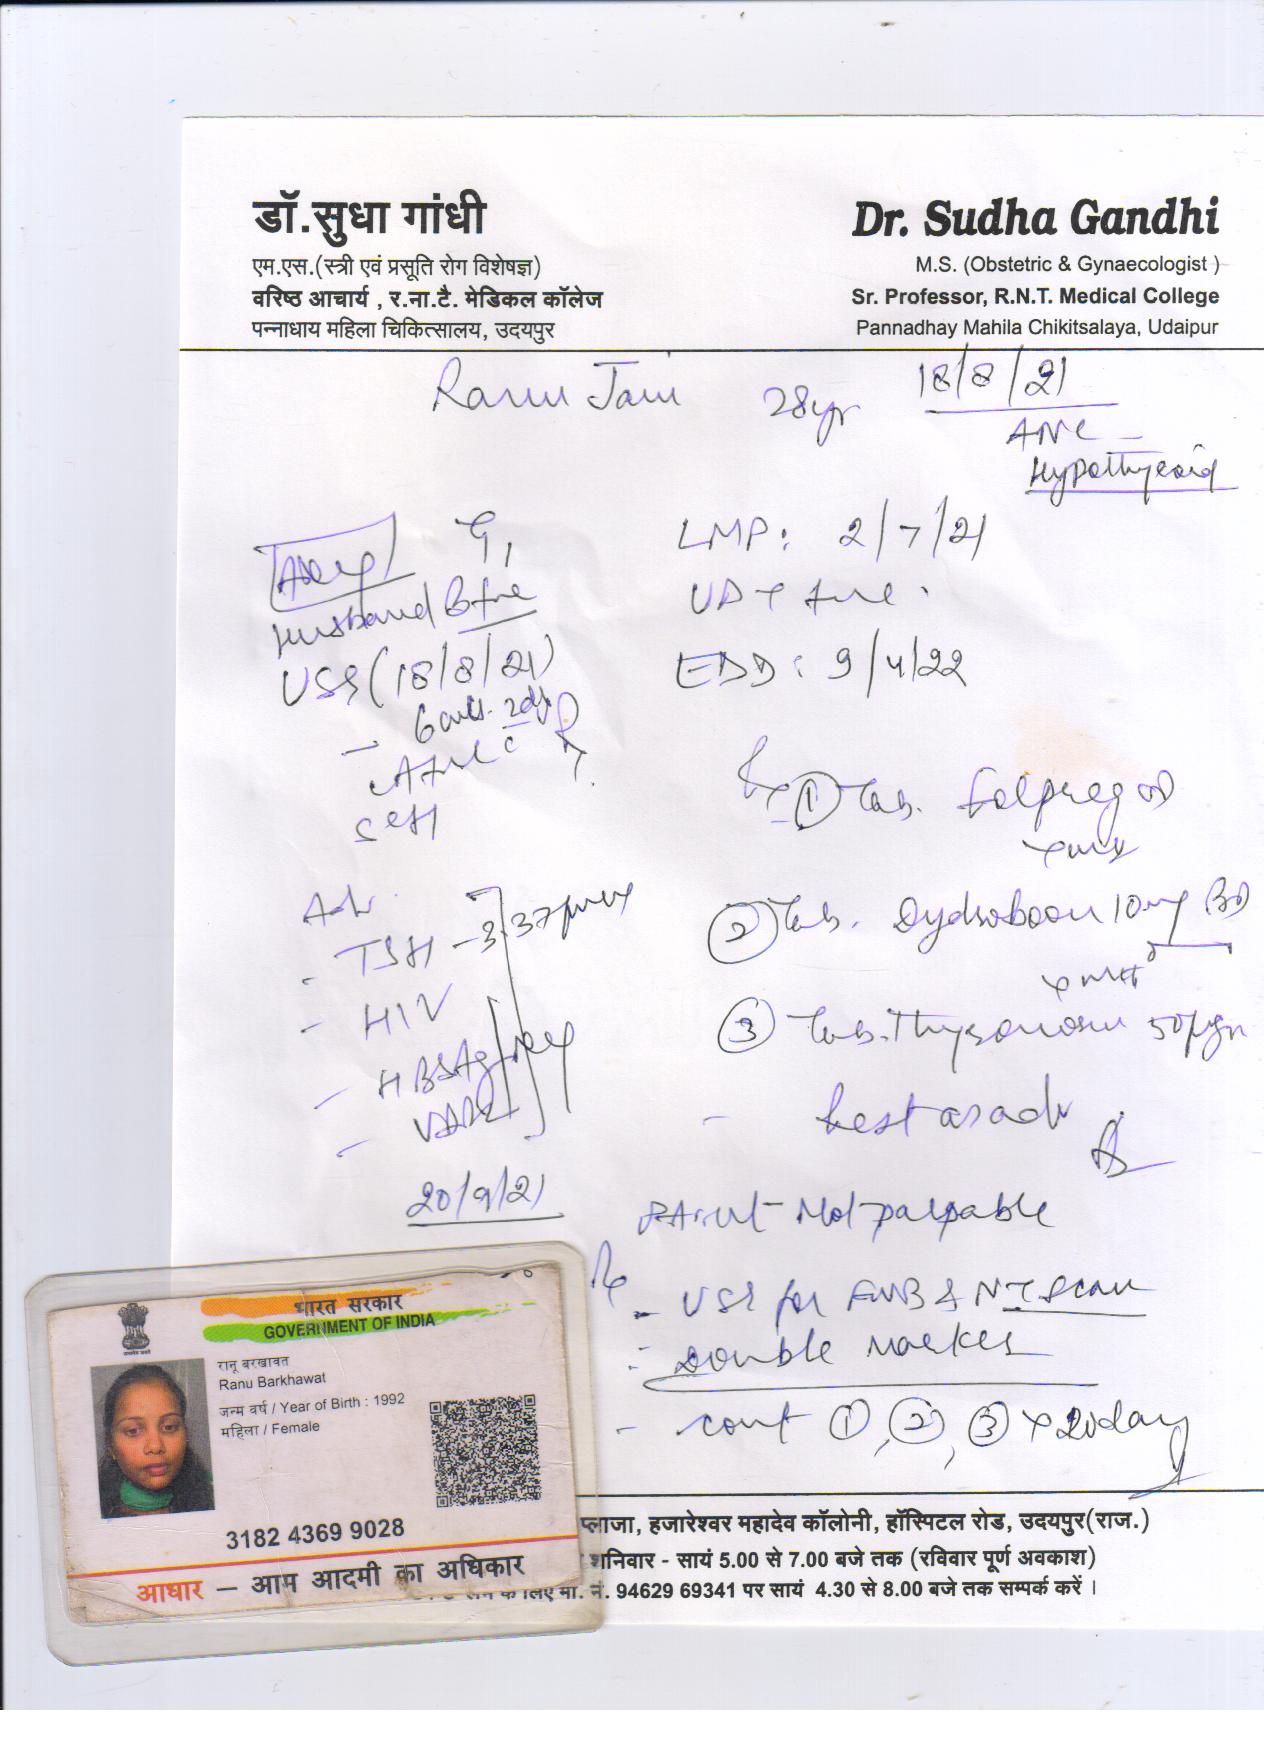 डॉ.सुधा गांधी
एम.एस.(स्त्री एवं प्रसूति रोग विशेषज्ञ)
वरिष्ठ आचार्य , र.ना.टै. मेडिकल कॉलेज
पन्नाधाय महिला चिकित्सालय, उदयपुर
Dr. Sudha Gandhi
M.S. (Obstetric & Gynaecologist )
Sr. Professor, R.N.T. Medical College
Pannadhay Mahila Chikitsalaya, Udaipur
Ranu Jain 28yr 18/8/21
ANC
Hypothyroid
G1
Husband B +ve
USG (18/8/21)
LMP: 2/7/21
UPT +ve
EDD: 9/4/22
Adv.
- TSH - 3.37
- HIV
- HBSAg
- VDRL
Rx
① Tab. Folpreg OD
② Tab. Dydroboon 10mg BD
③ Tab. Thyronorm 50µgm
- Rest as adv
20/9/21
P/A: Ut - Not palpable
Rx
- USG for FWB & NT Scan
- Double Marker
- cont ①, ②, ③ x 20 day
भारत सरकार
GOVERNMENT OF INDIA
रानू बरखावत
Ranu Barkhawat
जन्म वर्ष / Year of Birth : 1992
महिला / Female
3182 4369 9028
आधार – आम आदमी का अधिकार
प्लाजा, हजारेश्वर महादेव कॉलोनी, हॉस्पिटल रोड, उदयपुर(राज.)
शनिवार - सायं 5.00 से 7.00 बजे तक (रविवार पूर्ण अवकाश)
के लिए मो. नं. 94629 69341 पर सायं 4.30 से 8.00 बजे तक सम्पर्क करें ।